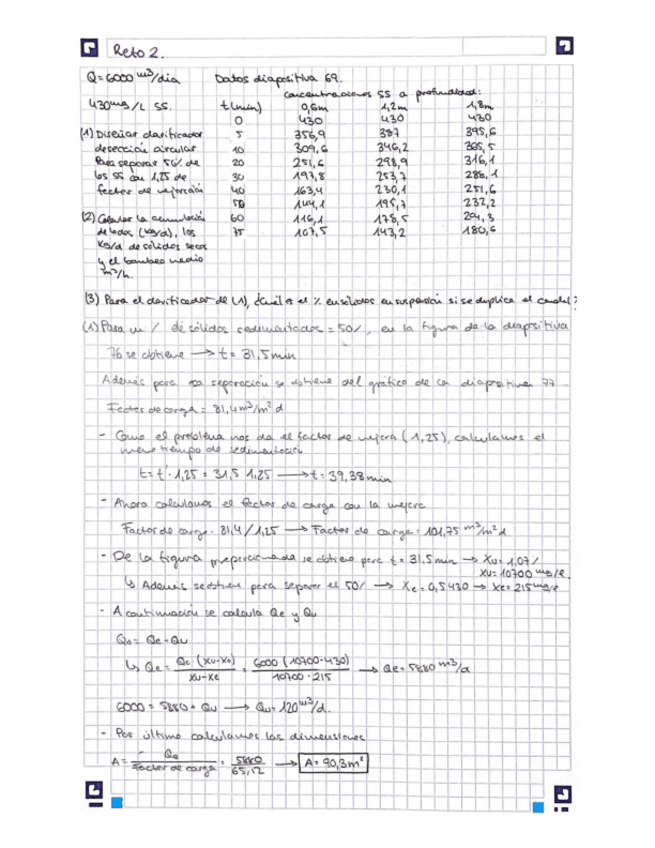 Reto 2.
Q = 6000 m³/dia Datos diapositiva 69.
concentraciones SS a profundidad:
430 mg/L SS. t(min) 0,6m 1,2m 1,8m
0 430 430 430
(1) Diseñar clarificador 5 356,9 387 395,6
de sección circular 10 309,6 346,2 365,5
Para separar 50% de 20 251,6 298,9 316,1
los SS con 1,25 de 30 197,8 253,7 288,1
factor de mejoración 40 163,4 230,1 251,6
50 144,1 195,7 232,2
(2) Calcular la acumulación 60 116,1 178,5 204,3
de lodos (kg/d), los 75 107,5 143,2 180,6
kg/d de sólidos secos
y el bombeo medio
m³/h.
(3) Para el clarificador de (1), ¿cuál es el % en sólidos en suspensión si se duplica el caudal?
(1) Para un % de sólidos sedimentados = 50%, en la figura de la diapositiva
76 se obtiene → t = 31,5 min
Además para separación se obtiene del gráfico de la diapositiva 77
Factor de carga = 81,4 m³/m² d
- Como el problema nos da el factor de mejora (1,25), calculamos el
tiempo de sedimentación
t = t' · 1,25 = 31,5 · 1,25 → t = 39,38 min
- Ahora calculamos el factor de carga con la mejora
Factor de carga = 81,4 / 1,25 → Factor de carga = 101,75 m³/m² d
- De la figura proporcionada se obtiene para t = 31.5 min → Xu = 1,07%
Xu = 10700 mg/L
↳ Además se obtiene para separar el 50% → Xe = 0,5·430 → Xe = 215 mg/L
- A continuación se calcula Qe y Qu
Qo = Qe + Qu
↳ Qe = Qo · (Xu-Xo) / Xu-Xe = 6000 (10700-430) / 10700 - 215 → Qe = 5880 m³/d
6000 = 5880 + Qu → Qu = 120 m³/d.
- Por último calculamos las dimensiones
A = Qe / Factor de carga = 5880 / 65,12 → A = 90,3 m²